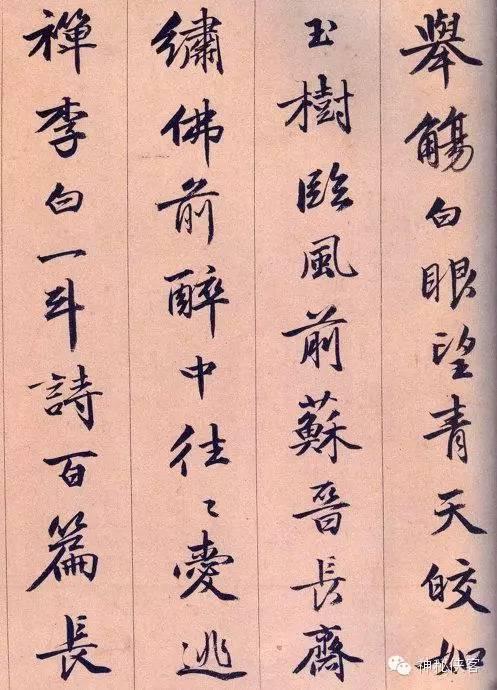 舉觴白眼望青天皎如
玉樹臨風前蘇晉長齋
繡佛前醉中往〻愛逃
禪李白一斗詩百篇長
神秘侠客